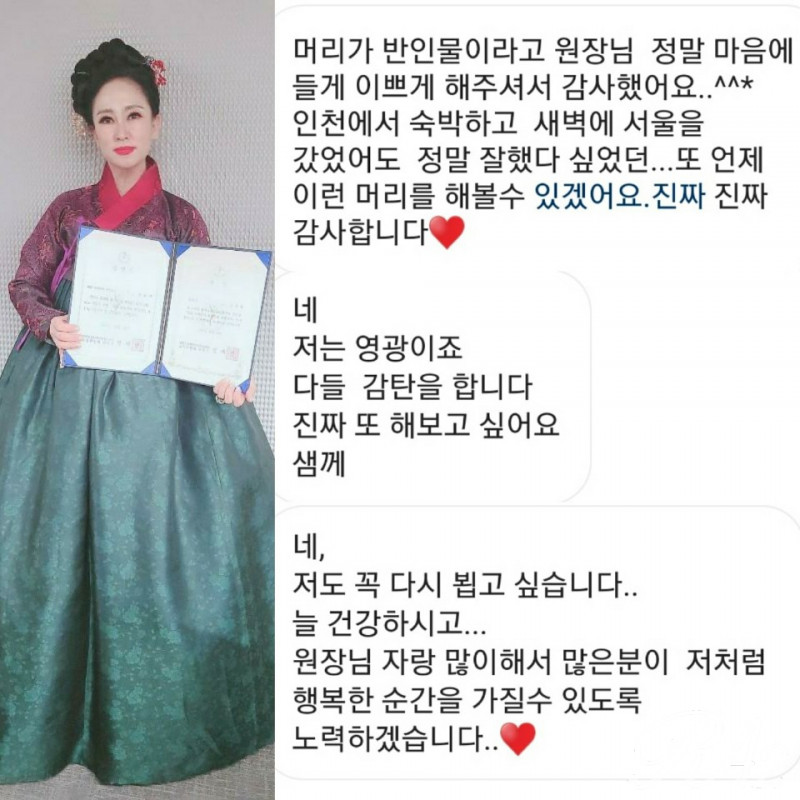 머리가 반인물이라고 원장님 정말 마음에
들게 이쁘게 해주셔서 감사했어요..^^*
인천에서 숙박하고 새벽에 서울을
갔었어도 정말 잘했다 싶었던...또 언제
이런 머리를 해볼수 있겠어요.진짜 진짜
감사합니다❤️
네
저는 영광이죠
다들 감탄을 합니다
진짜 또 해보고 싶어요
샘께
네,
저도 꼭 다시 뵙고 싶습니다..
늘 건강하시고...
원장님 자랑 많이해서 많은분이 저처럼
행복한 순간을 가질수 있도록
노력하겠습니다..❤️